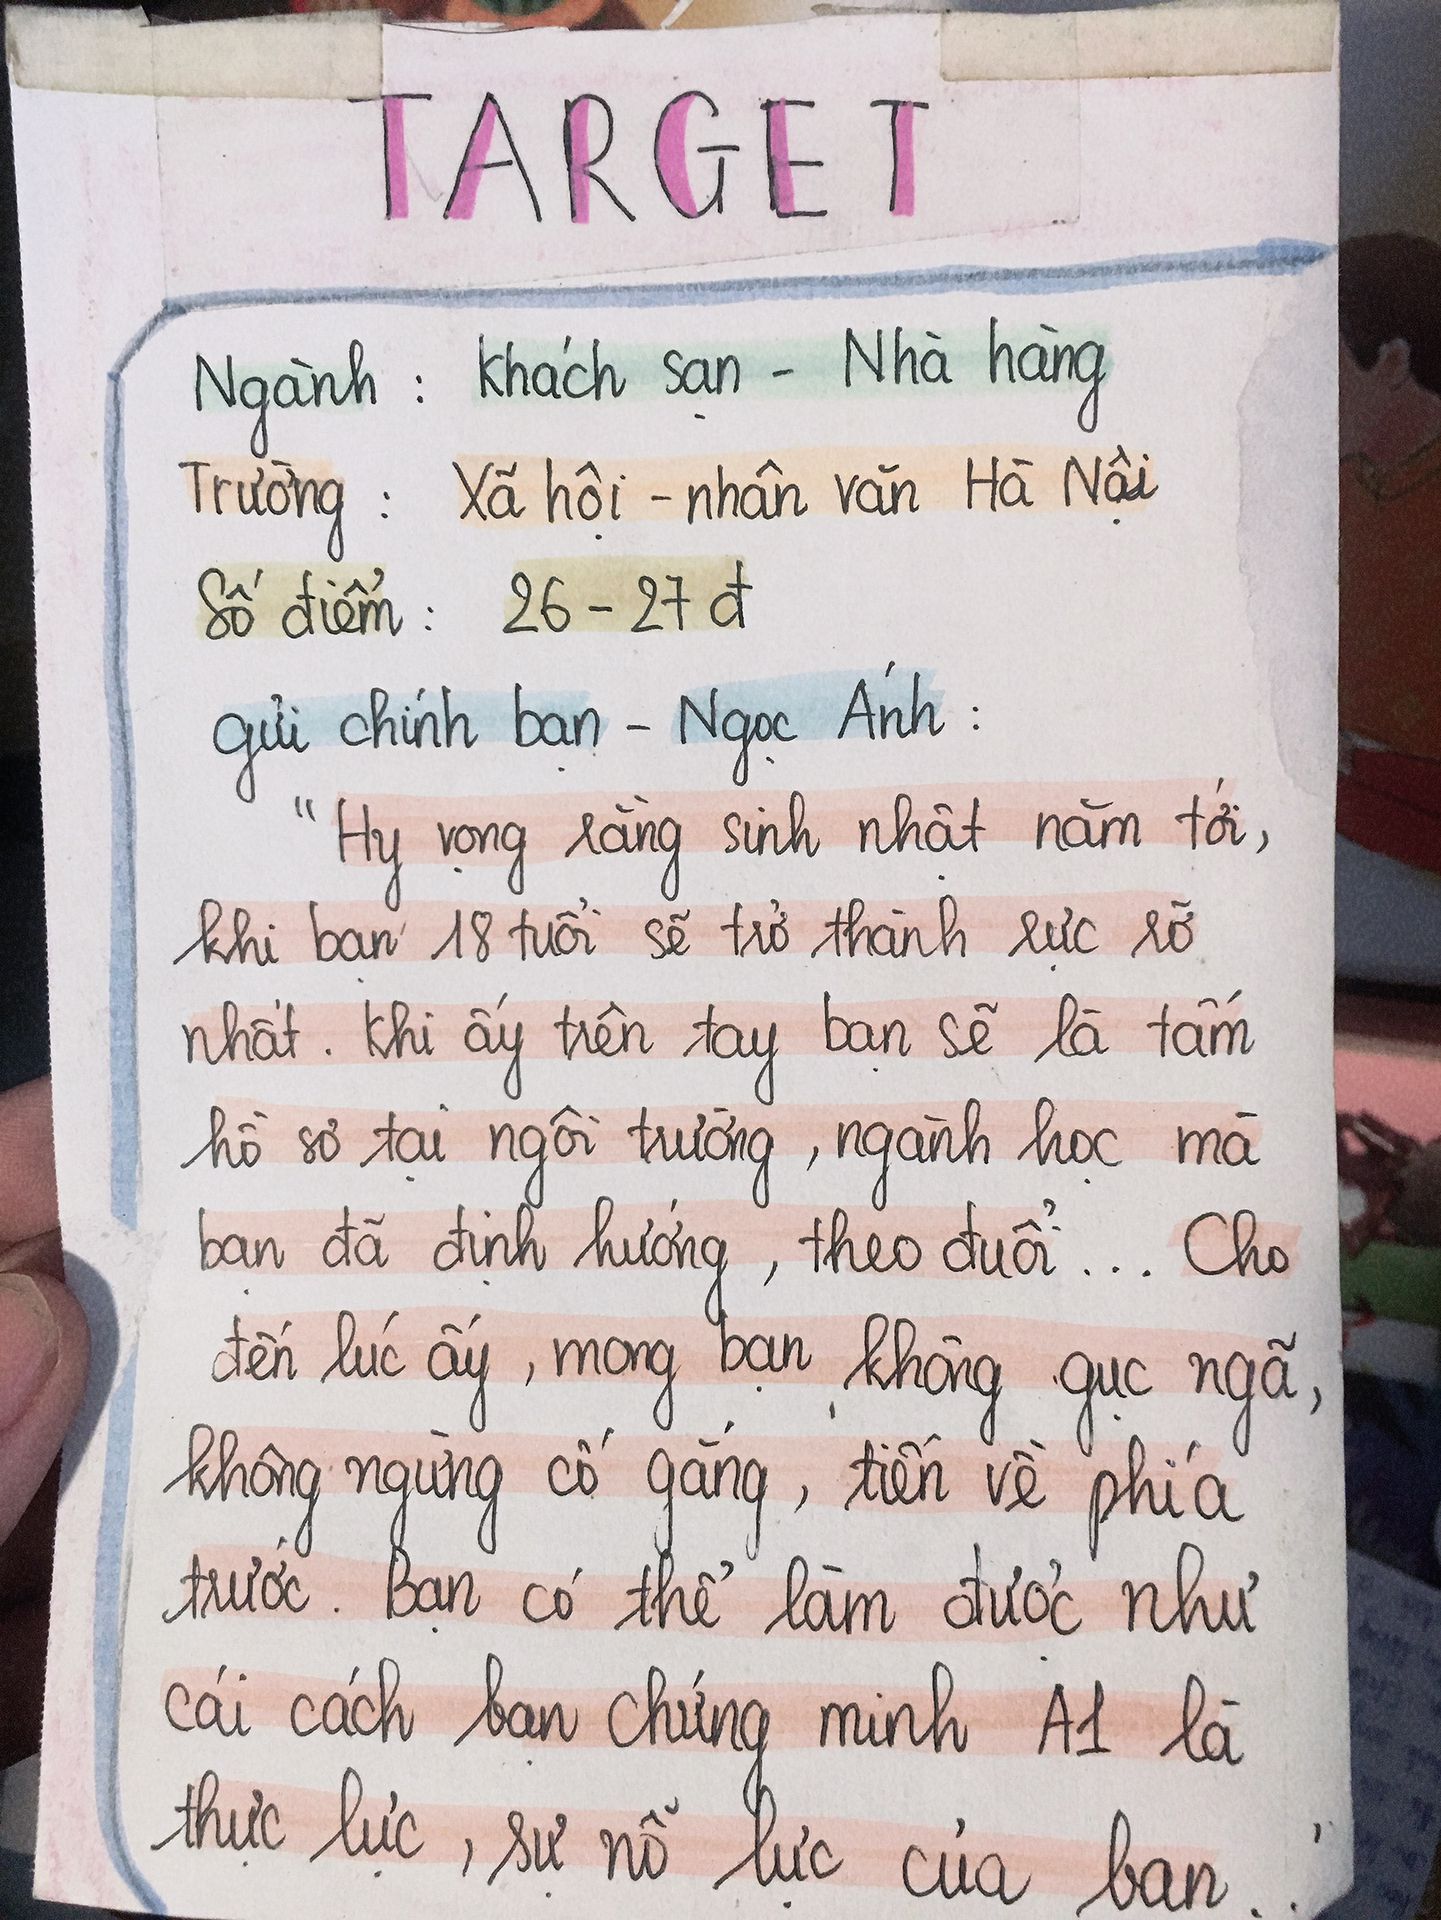 TARGET
Ngành : khách sạn - Nhà hàng
Trường : Xã hội - nhân văn Hà Nội
Số điểm : 26 - 27 đ
gửi chính bạn - Ngọc Ánh :
"Hy vọng rằng sinh nhật năm tới,
khi bạn 18 tuổi sẽ trở thành rực rỡ
nhất. Khi ấy trên tay bạn sẽ là tấm
hồ sơ tại ngôi trường, ngành học mà
bạn đã định hướng, theo đuổi... Cho
đến lúc ấy, mong bạn không gục ngã,
không ngừng cố gắng, tiến về phía
trước. Bạn có thể làm được như
cái cách bạn chứng minh A1 là
thực lực, sự nỗ lực của bạn..